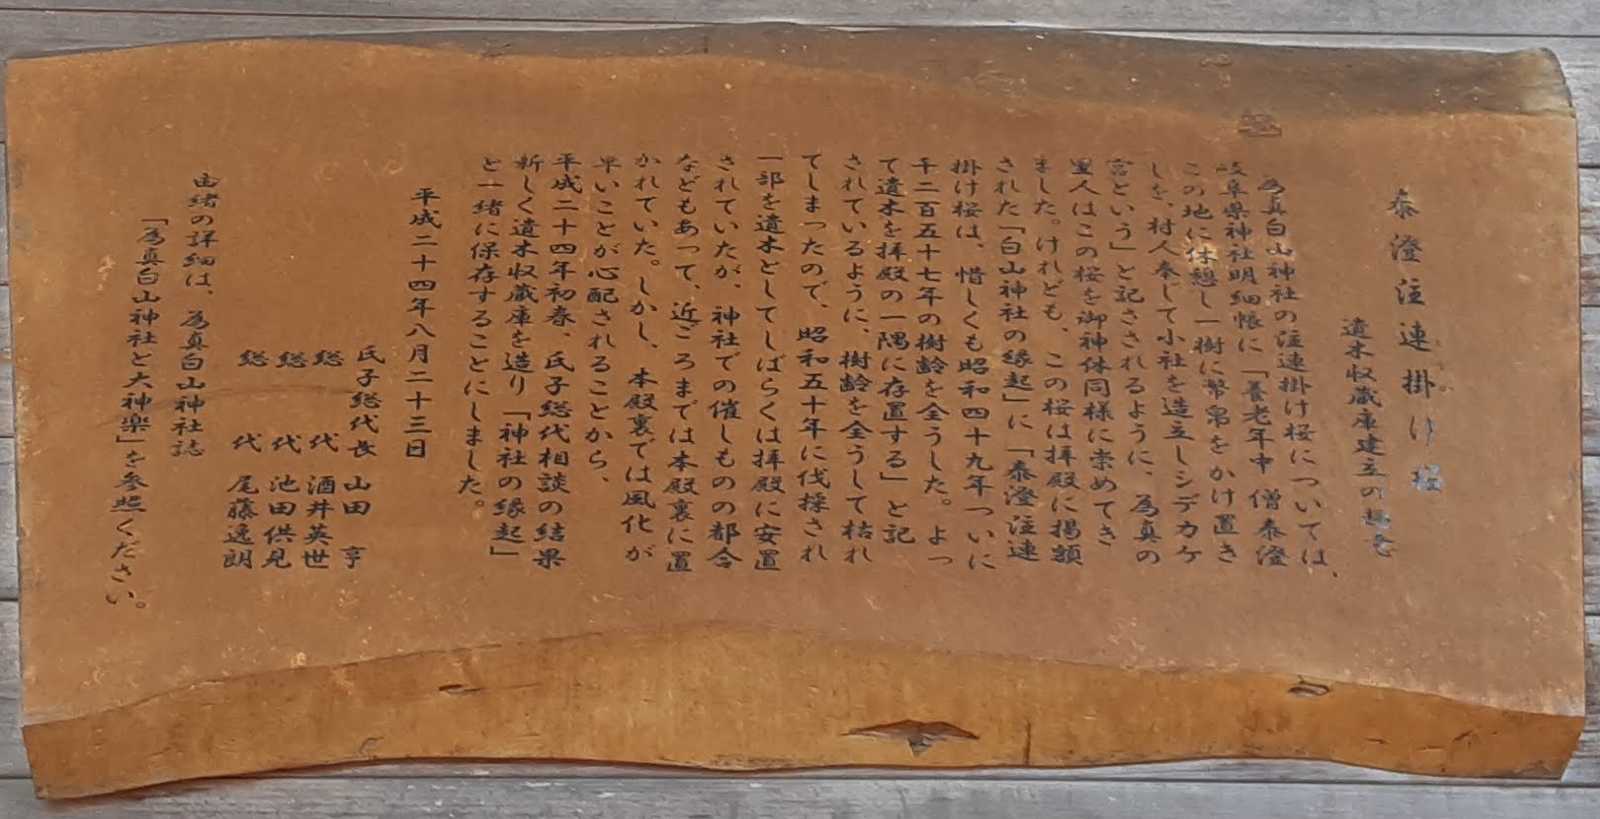 泰澄注連掛け桜
遺木収蔵庫建立の
為真白山神社の注連掛け桜については、
岐阜県神社明細帳に「養老年中 僧泰澄
この地に休憩し一樹に幣帛をかけ置き
しを、村人奉じて小社を造立しシデカケ
宮という」と記さされるように、為真の
里人はこの桜を御神体同様に崇めてき
ました。けれども、この桜は拝殿に掲額
された「白山神社の縁起」に「泰澄注連
掛け桜は、惜しくも昭和四十九年ついに
千二百五十七年の樹齢を全うした。よっ
て遺木を拝殿の一隅に存置する」と記
されているように、樹齢を全うして枯れ
てしまったので、昭和五十年に伐採され
一部を遺木としてしばらくは拝殿に安置
されていたが、神社での催しものの都合
などもあって、近ごろまでは本殿裏に置
かれていた。しかし、本殿裏では風化が
早いことが心配されることから、
平成二十四年初春、氏子総代相談の結果
新しく遺木収蔵庫を造り「神社の縁起」
と一緒に保存することにしました。
平成二十四年八月二十三日
氏子総代長 山田 亨
総代 酒井英世
総代 池田供見
総代 尾藤逸朗
由緒の詳細は、為真白山神社誌
「為真白山神社と大神楽」を参照ください。